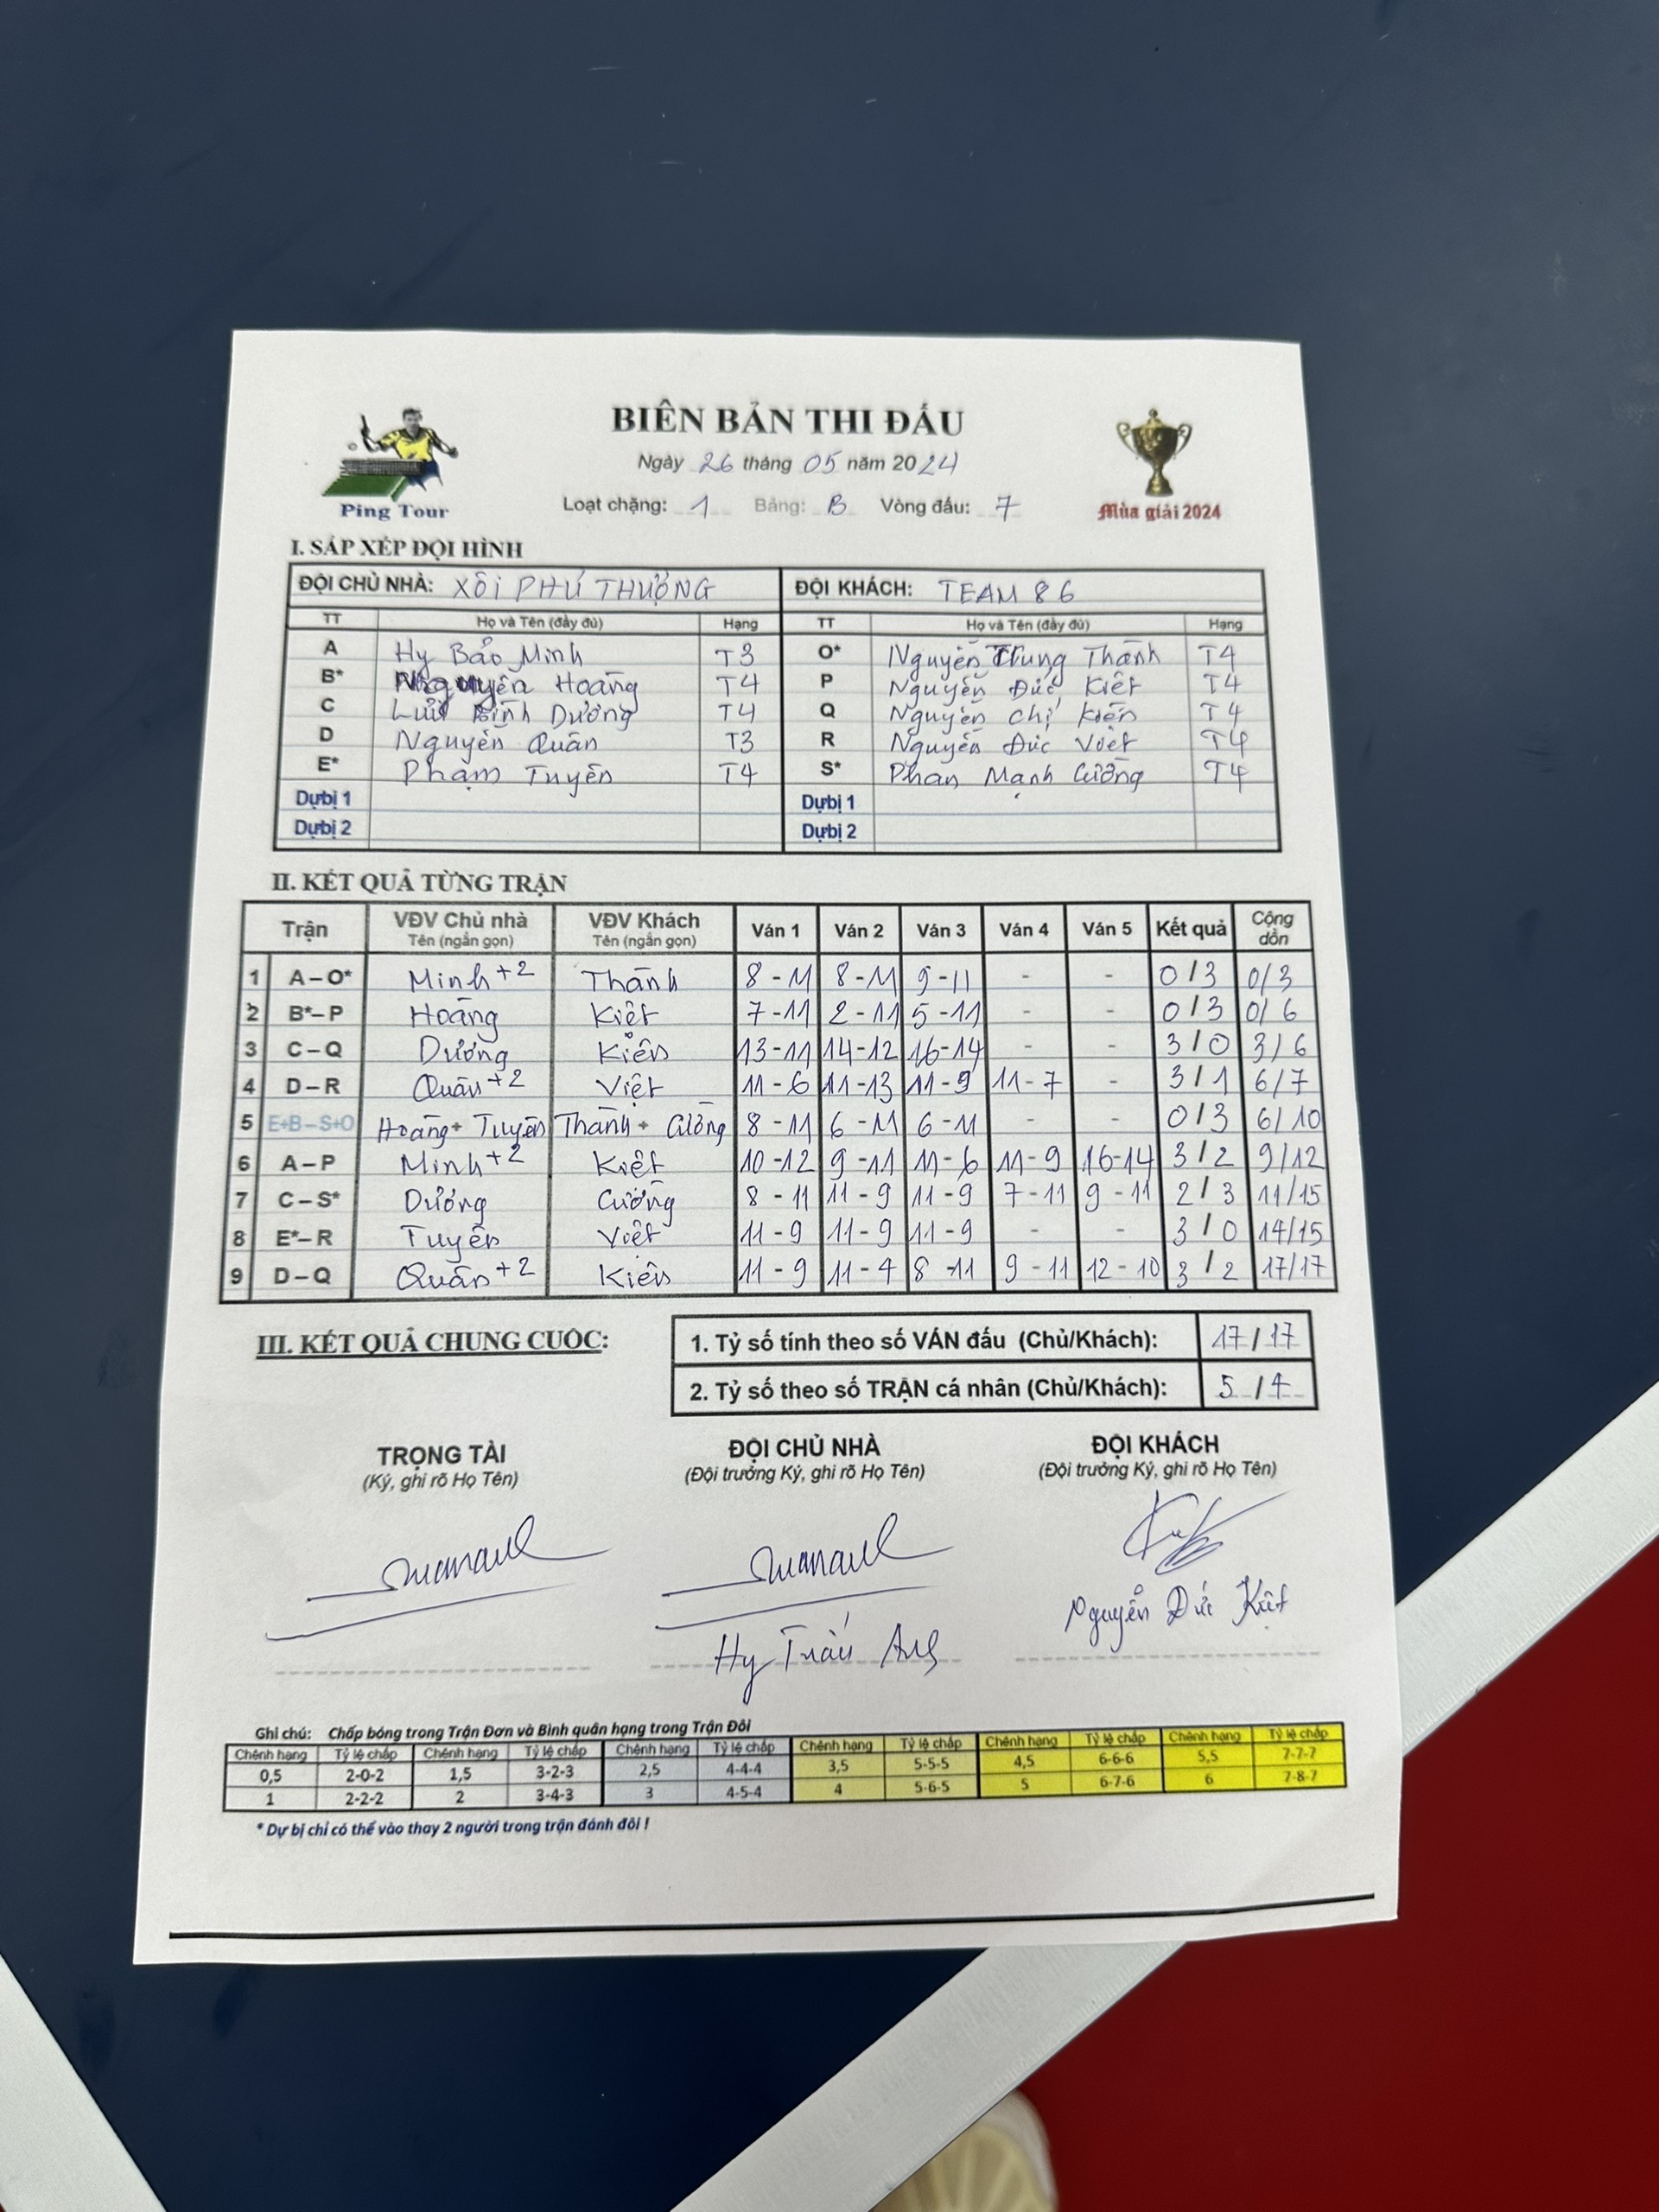 BIÊN BẢN THI ĐẤU
Ngày 26 tháng 05 năm 2024
Loạt chặng: 1 Bảng: B Vòng đấu: 7
Ping Tour
Mùa giải 2024
I. SẮP XẾP ĐỘI HÌNH
ĐỘI CHỦ NHÀ: XÔI PHÚ THƯỢNG ĐỘI KHÁCH: TEAM 86
TT Họ và Tên (đầy đủ) Hạng TT Họ và Tên (đầy đủ) Hạng
A Hy Bảo Minh T3 O* Nguyễn Trung Thành T4
B* Nguyễn Hoàng T4 P Nguyễn Đức Kiệt T4
C Lưu Bình Dương T4 Q Nguyễn Chí Kiên T4
D Nguyễn Quân T3 R Nguyễn Đức Việt T4
E* Phạm Tuyên T4 S* Phan Mạnh Cường T4
Dự bị 1 Dự bị 1
Dự bị 2 Dự bị 2
II. KẾT QUẢ TỪNG TRẬN
Trận VĐV Chủ nhà VĐV Khách Ván 1 Ván 2 Ván 3 Ván 4 Ván 5 Kết quả Cộng dồn
Tên (ngắn gọn) Tên (ngắn gọn)
1 A – O* Minh +2 Thành 8 - 11 8 - 11 9 - 11 - - 0 / 3 0/3
2 B* – P Hoàng Kiệt 7 - 11 2 - 11 5 - 11 - - 0 / 3 0/6
3 C – Q Dương Kiên 13 - 11 14 - 12 16 - 14 - - 3 / 0 3/6
4 D – R Quân +2 Việt 11 - 6 11 - 13 11 - 9 11 - 7 - 3 / 1 6/7
5 E+B – S+O Hoàng + Tuyên Thành + Cường 8 - 11 6 - 11 6 - 11 - - 0 / 3 6/10
6 A – P Minh +2 Kiệt 10 - 12 9 - 11 11 - 6 11 - 9 16 - 14 3 / 2 9/12
7 C – S* Dương Cường 8 - 11 11 - 9 11 - 9 7 - 11 9 - 11 2 / 3 11/15
8 E* – R Tuyên Việt 11 - 9 11 - 9 11 - 9 - - 3 / 0 14/15
9 D – Q Quân +2 Kiên 11 - 9 11 - 4 8 - 11 9 - 11 12 - 10 3 / 2 17/17
III. KẾT QUẢ CHUNG CUỘC:
1. Tỷ số tính theo số VÁN đấu (Chủ/Khách): 17 / 17
2. Tỷ số theo số TRẬN cá nhân (Chủ/Khách): 5 / 4
TRỌNG TÀI ĐỘI CHỦ NHÀ ĐỘI KHÁCH
(Ký, ghi rõ Họ Tên) (Đội trưởng Ký, ghi rõ Họ Tên) (Đội trưởng Ký, ghi rõ Họ Tên)
Nguyễn Đức Kiệt
Hy
Ghi chú: Chấp bóng trong Trận Đơn và Bình quân hạng trong Trận Đôi
Chênh hạng Tỷ lệ chấp Chênh hạng Tỷ lệ chấp Chênh hạng Tỷ lệ chấp Chênh hạng Tỷ lệ chấp Chênh hạng Tỷ lệ chấp Chênh hạng Tỷ lệ chấp
0,5 2-0-2 1,5 3-2-3 2,5 4-4-4 3,5 5-5-5 4,5 6-6-6 5,5 7-7-7
1 2-2-2 2 3-4-3 3 4-5-4 4 5-6-5 5 6-7-6 6 7-8-7
* Dự bị chỉ có thể vào thay 2 người trong trận đánh đôi !